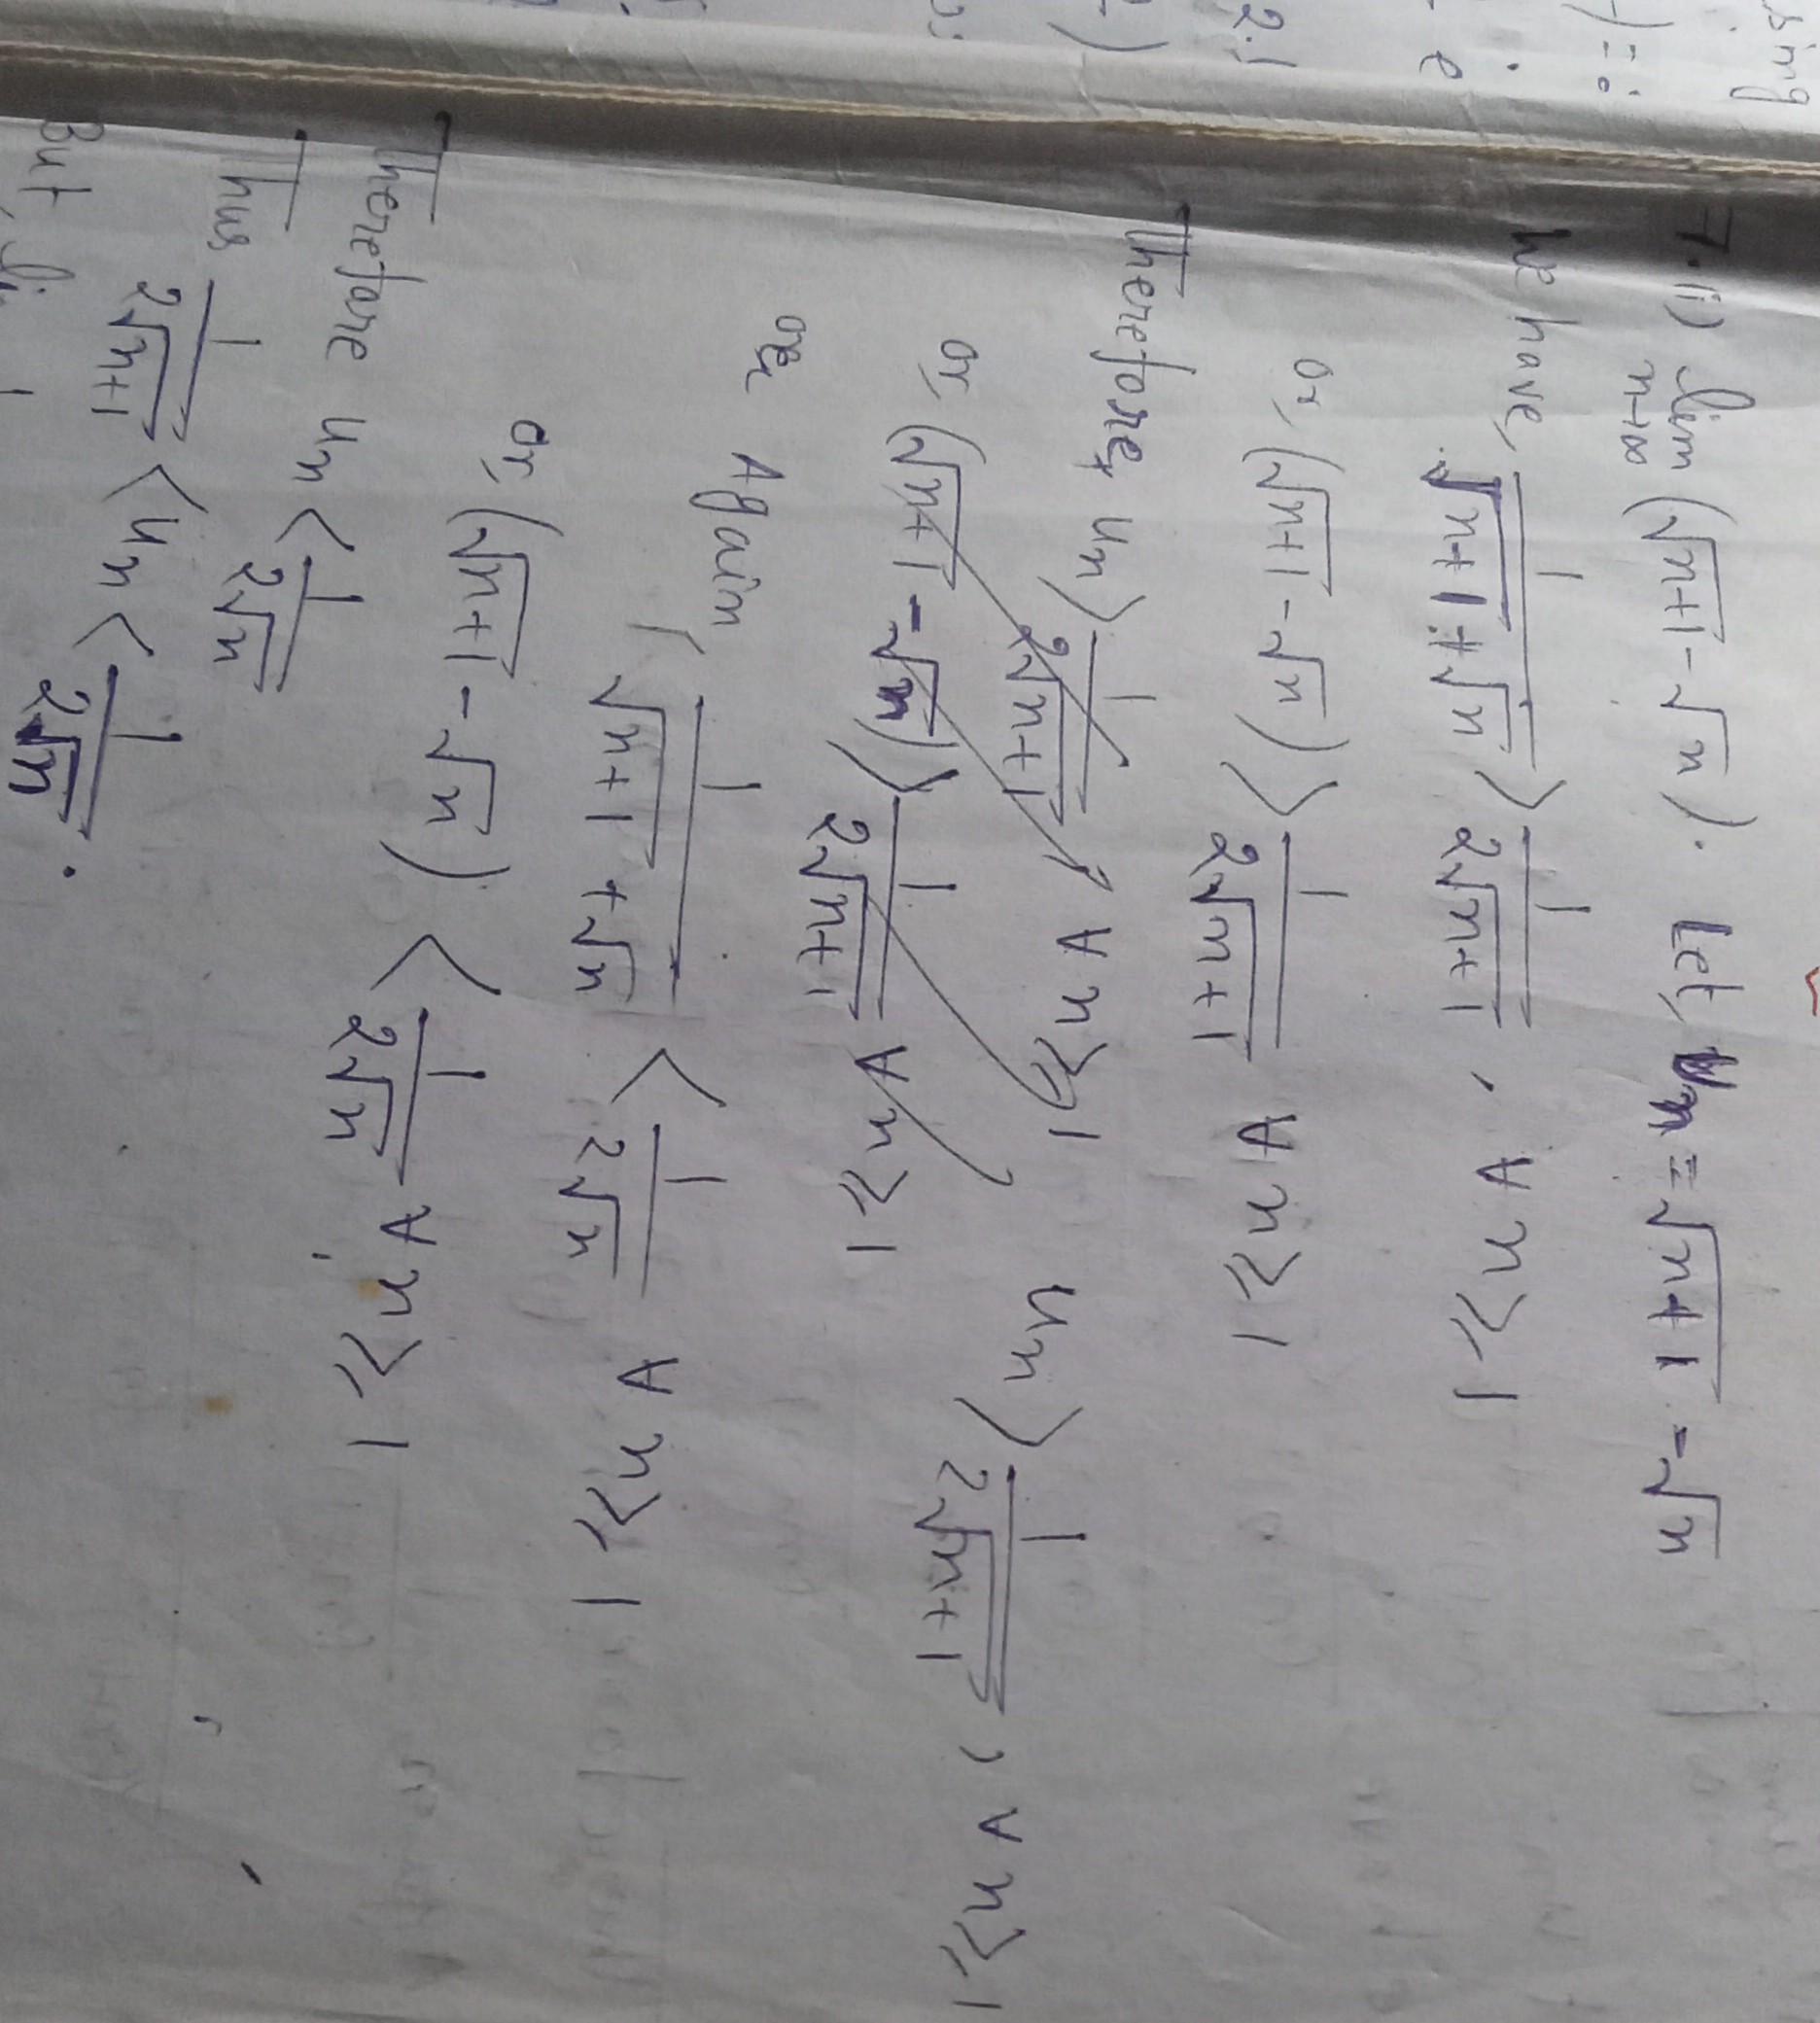 sing
-) = 0
e
2.1
7. i) lim n→∞ (√n+1 - √n). Let, un = √n+1 - √n
We have, 1/(√n+1 + √n) > 1/(2√n+1), ∀ n ≥ 1
or, (√n+1 - √n) > 1/(2√n+1) ∀ n ≥ 1
Therefore, un > 1/(2√n+1) ∀ n ≥ 1
or, (√n+1 - √n) > 1/(2√n+1) ∀ n ≥ 1 un > 1/(2√n+1), ∀ n ≥ 1
Again, 1/(√n+1 + √n) < 1/(2√n) ∀ n ≥ 1
or, (√n+1 - √n) < 1/(2√n) ∀ n ≥ 1
Therefore un < 1/(2√n)
Thus 1/(2√n+1) < un < 1/(2√n).
But,